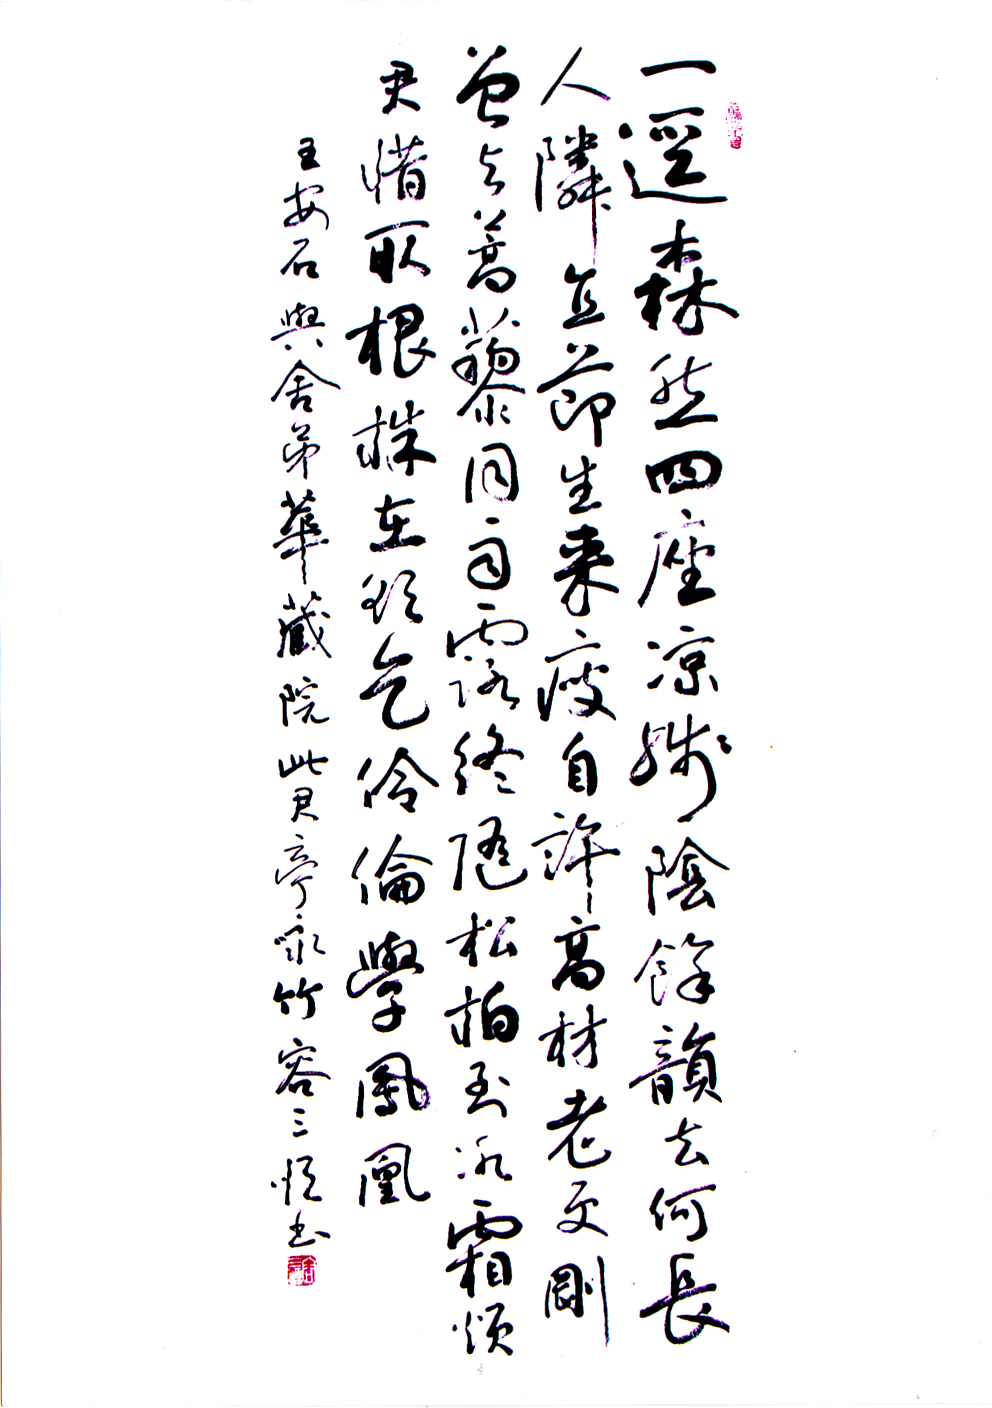 一逕森然四座凉殘陰餘韻去何長
人隣直節生来瘦自許高材老更剛
曾与蒿藜同雨露終隨松柏到冰霜煩
君惜取根株在欲乞伶倫學鳳凰
王安石與舍弟華藏院此君亭咏竹 容三书